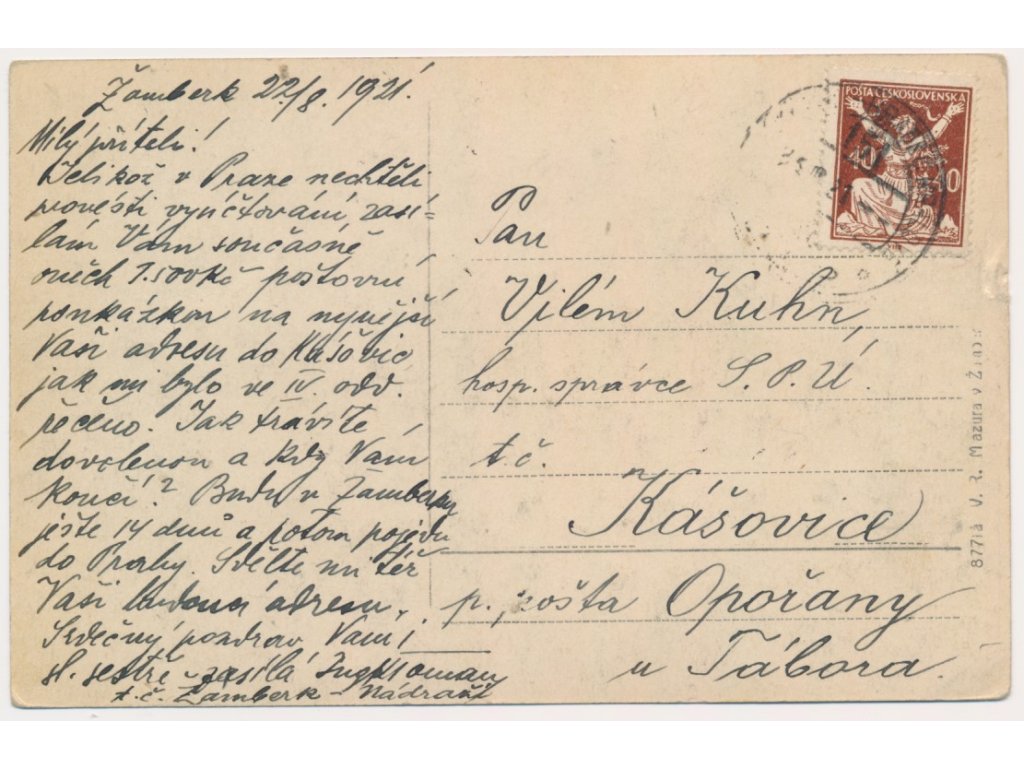 Žamberk 22/8. 1921.
Milý příteli!
Jelikož v Praze nechtěli
provésti vyúčtování zasí-
lám Vám současně
oněch 1.500Kč poštovní
poukázkou na nynější
Vaši adresu do Kášovic
jak mi bylo ve IV. odd.
řečeno. Jak trávíte
dovolenou a kdy Vám
končí? Budu v Žamberku
ještě 14 dnů a potom pojedu
do Prahy. Sdělte mi též
Vaši budoucí adresu.
Srdečný pozdrav Vám i
sl. sestře zasílá Ing
t.č. Žamberk - Nádraží
POSTA ČESKOSLOVENSKÁ
40
Pan
Vilém Kuhn,
hosp. správce S. P. Ú.
t. č.
Kášovice
p. pošta Opořany
u Tábora.
8771a V. R. Mazura v